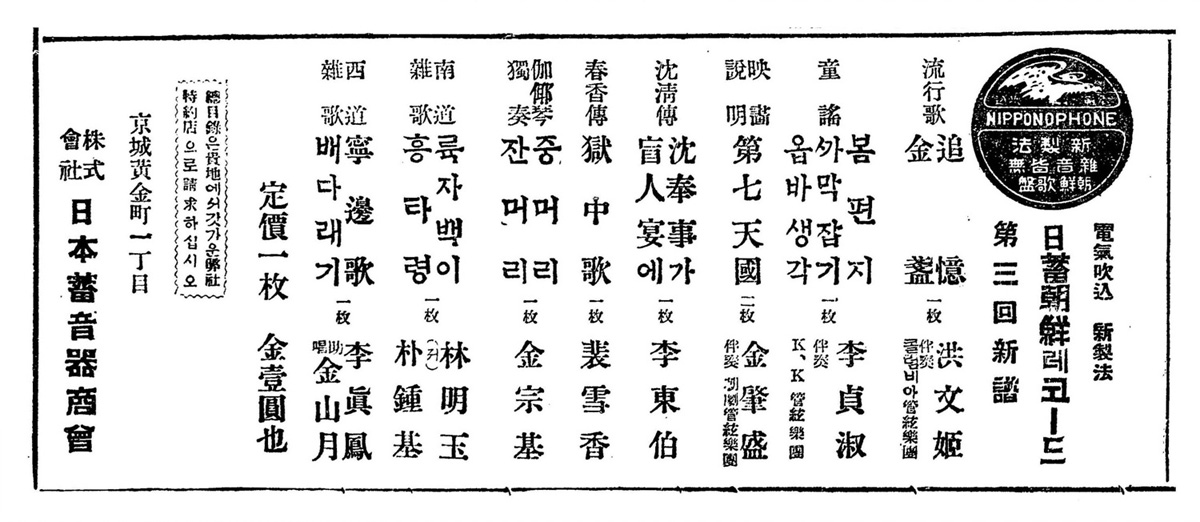 NIPPONOPHONE
新製法
雜音皆無
朝鮮歌盤
電氣吹込 新製法
日蓄朝鮮레코ー드
第三回新譜
流行歌
追憶
金盞
一枚
洪文姬
伴奏 콜럼비아管絃樂團
童謠
봄편지
싸막잡기
옵바생각
一枚
李貞淑
伴奏
K、K管絃樂團
映畵
說明
第七天國
二枚
金肇盛
伴奏 朝劇管絃樂團
沈淸傳
沈奉事가
盲人宴에
一枚
李東伯
春香傳
獄中歌
一枚
裴雪香
伽倻琴
獨奏
중머리
잔머리
一枚
金宗基
南道
雜歌
륙자백이
흥타령
一枚
林明玉
朴鍾基
西道
雜歌
寧邊歌
배다래기
一枚
李眞鳳
助唱 金山月
定價一枚 金壹圓也
總目錄은貴地에서갓가운弊社
特約店으로請求하십시오
京城黃金町一丁目
株式會社 日本蓄音器商會